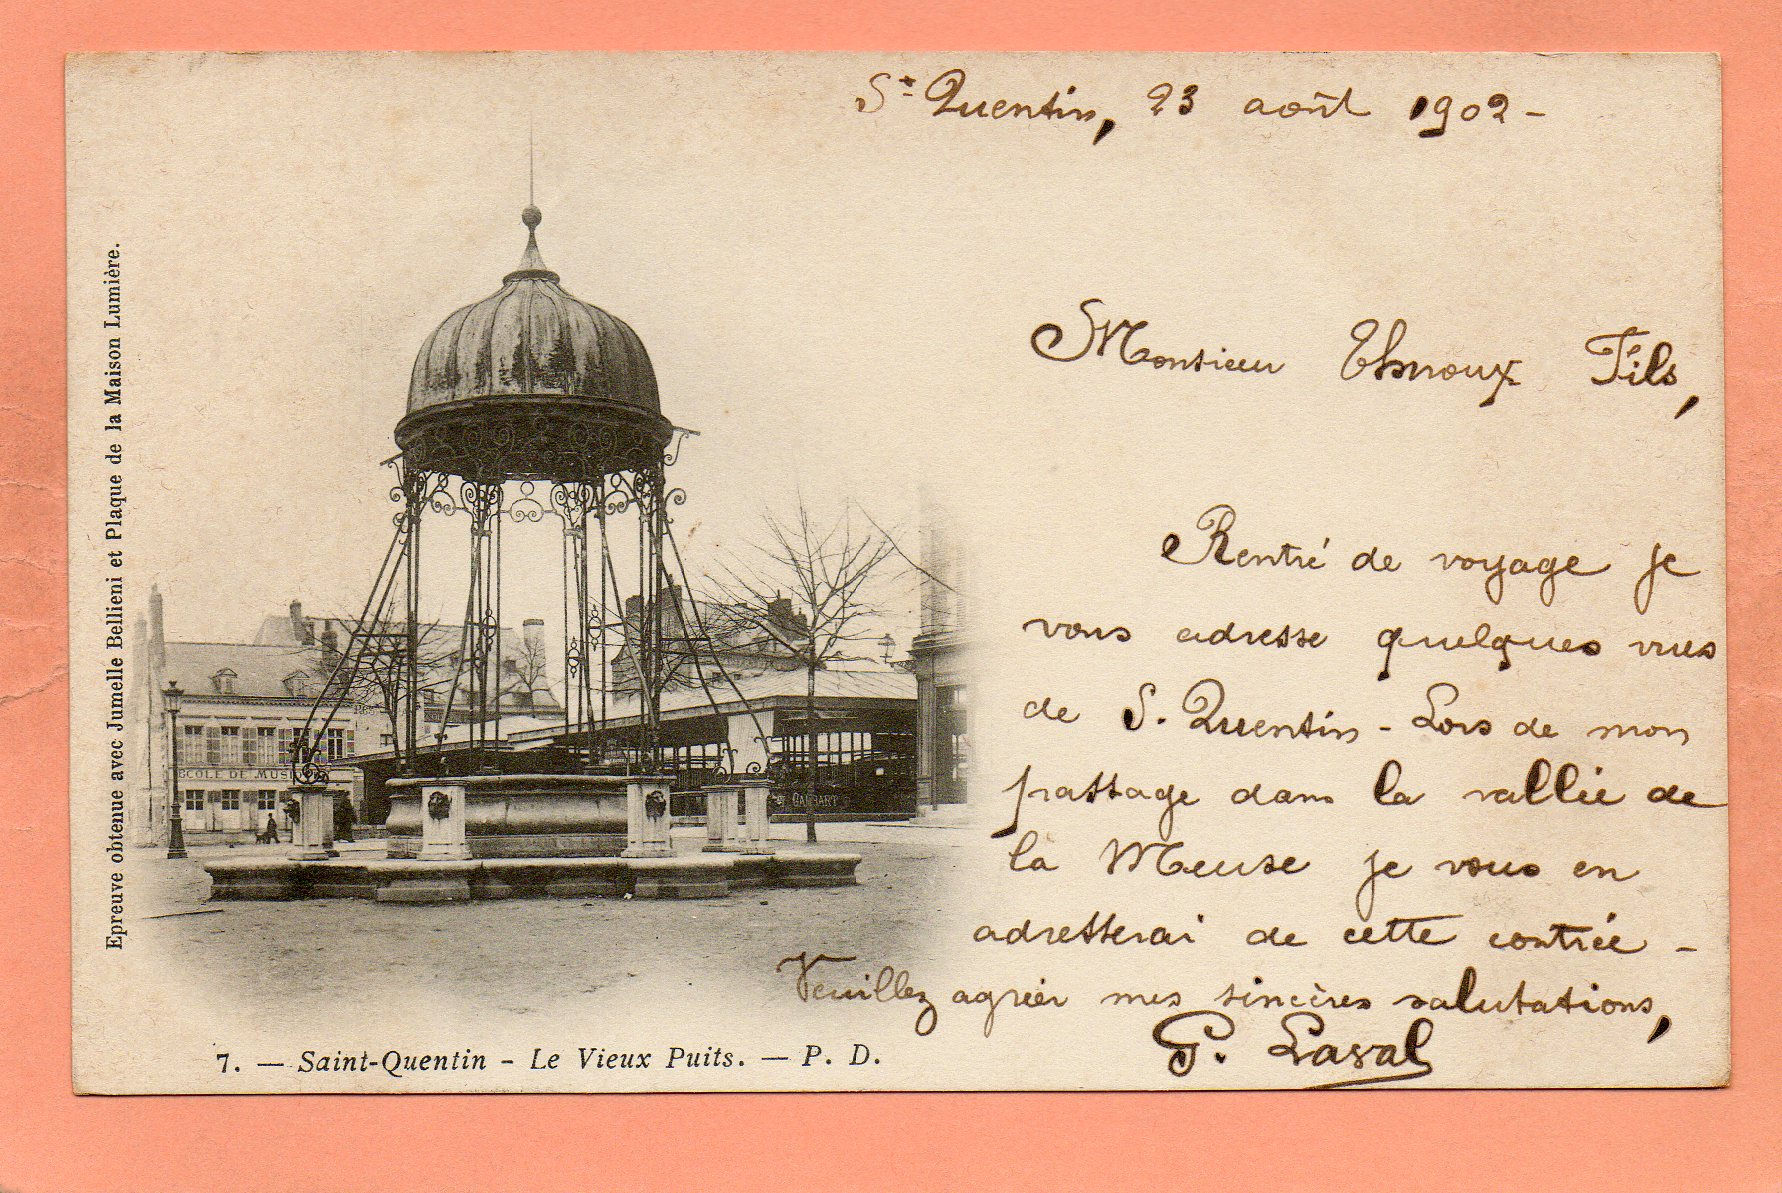 St Quentin, 23 août 1902 -
Monsieur Ehnoux Fils,
Rentré de voyage je
vous adresse quelques vues
de S. Quentin - Lors de mon
passage dans la vallée de
la Meuse je vous en
adresserai de cette contrée -
Veuillez agréer mes sincères salutations,
G. Laval
Epreuve obtenue avec Jumelle Bellieni et Plaque de la Maison Lumière.
ECOLE DE MUSI
7. — Saint-Quentin - Le Vieux Puits. — P. D.